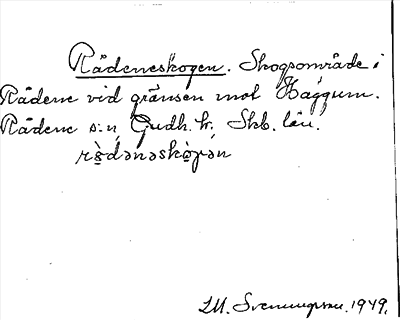 Rådeneskogen. Skogsområde i
Rådene vid gränsen mot Häggum.
Rådene s:n, Gudh. h., Skb. län.
rɷ̀dənəskòɡən
M. Svenungsson. 1949.